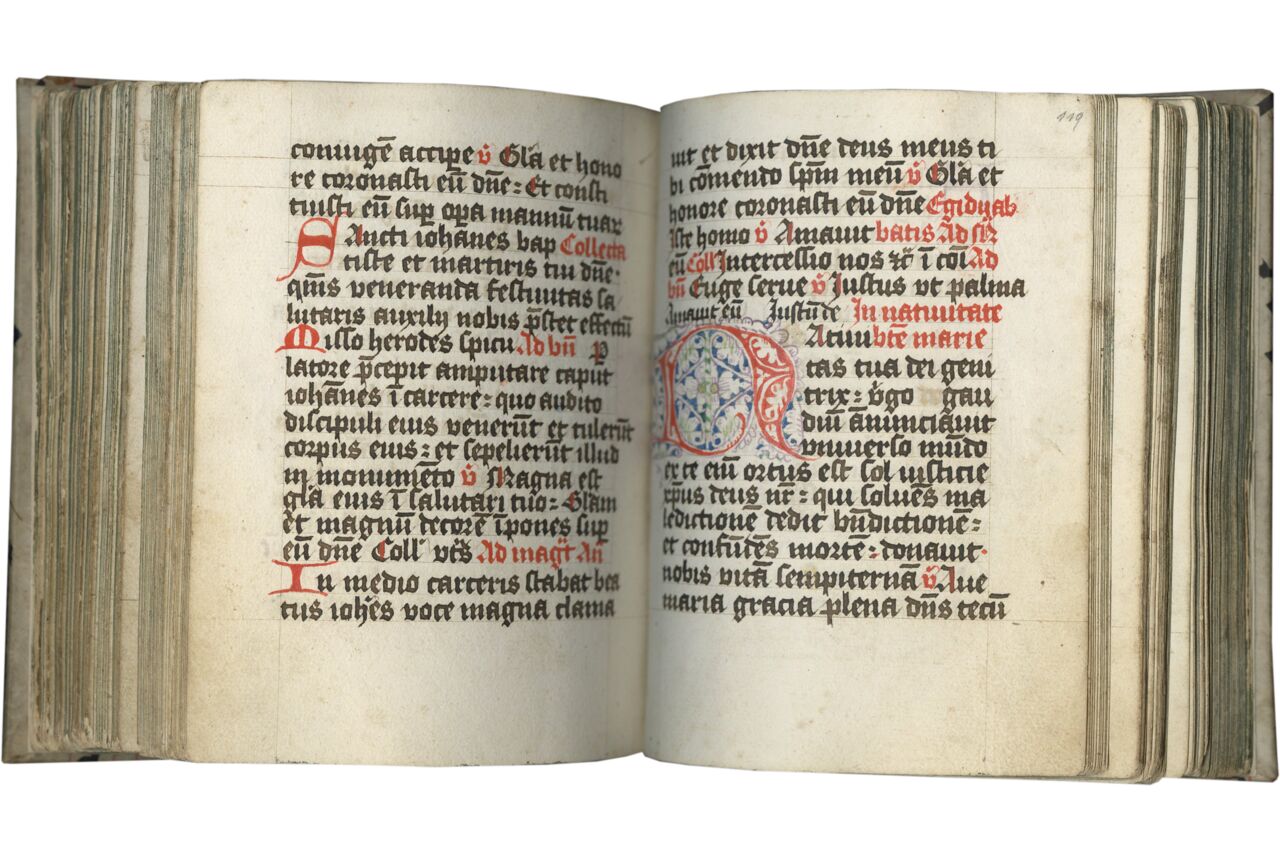 coniugē accipe v̄ Gl̄a et hono
re coronasti eū dn̄e : Et consti
tuisti eū sup̱ op̱a manuū tuar̨
SAncti iohanes bap Collecta
tiste et martiris tui dn̄e·
qm̄s veneranda festiuitas sa
lutaris auxilij nobis p̄stet effectū
Misso herodes spicu Ad bn̄ P
latore p̄cepit amputare caput
iohānes ī carcere : quo audito
discipuli eius venerūt et tulerūt
corpus eius : et sepelierūt illud
in monumēto v̄ Magna est
gl̄a eius ī salutari tuo : Glam
et magnū decorē īpones sup̱
eū dn̄e Coll' vt s̄ Ad maḡt An̄
In medio carceris stabat bea
tus ioh̄es voce magna clama
119
uit et dixit dn̄e deus meus ti
bi cōmendo sp̄m meū v̄ Gl̄a et
honore coronasti eū dn̄e Egidij ab
Iste homo v̄ Amauit batis Ad
eū Coll Intercessio nos ⁊c̄ ī cōi Ad
bn̄ Euge serue v̄ Justus vt palma
Amauit eū Justū de In natiuitate
NAtiui bt̄e marie
tas tua dei geni
trix : v̄go gau
diū ānunciāuit
vniuerso mūdo
ex te eiū ortus est sol iusticie
xp̄us deus nr̄ : qui soluēs ma
ledictionē dedit bn̄dictionē :
et confūdēs mortē : donauit·
nobis vitā sempiternā v̄ Aue
maria gracia plena dn̄s tecū